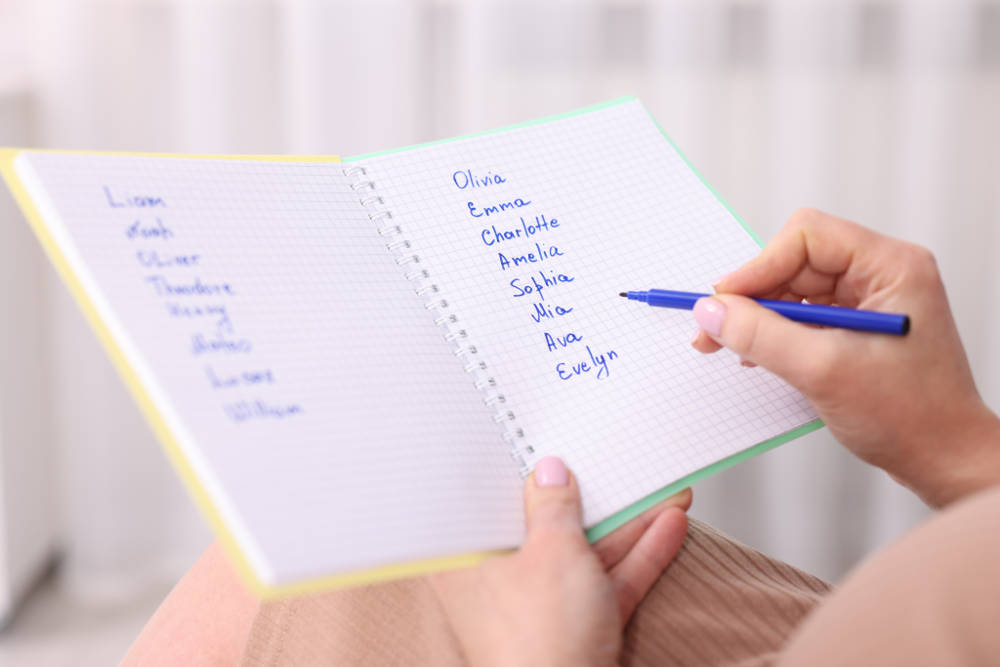 Liam
Noah
Oliver
Theodore
Henry
Lucas
William
Olivia
Emma
Charlotte
Amelia
Sophia
Mia
Ava
Evelyn